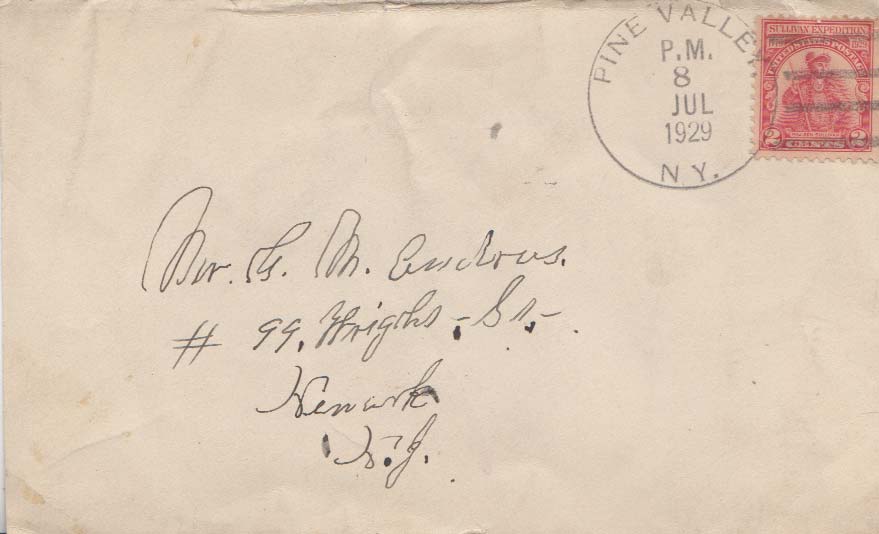 PINE VALLEY
P.M.
8
JUL
1929
N.Y.
SULLIVAN EXPEDITION
1779 1929
UNITED STATES POSTAGE
2 CENTS 2
Mr. G. M. Andrus.
# 99, Wright - St. -
Newark
N.J.